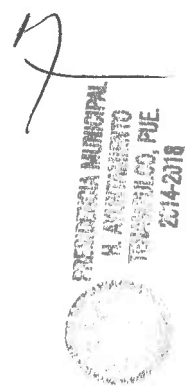 PRESIDENCIA MUNICIPAL
H. AYUNTAMIENTO
PUE.
2014-2018